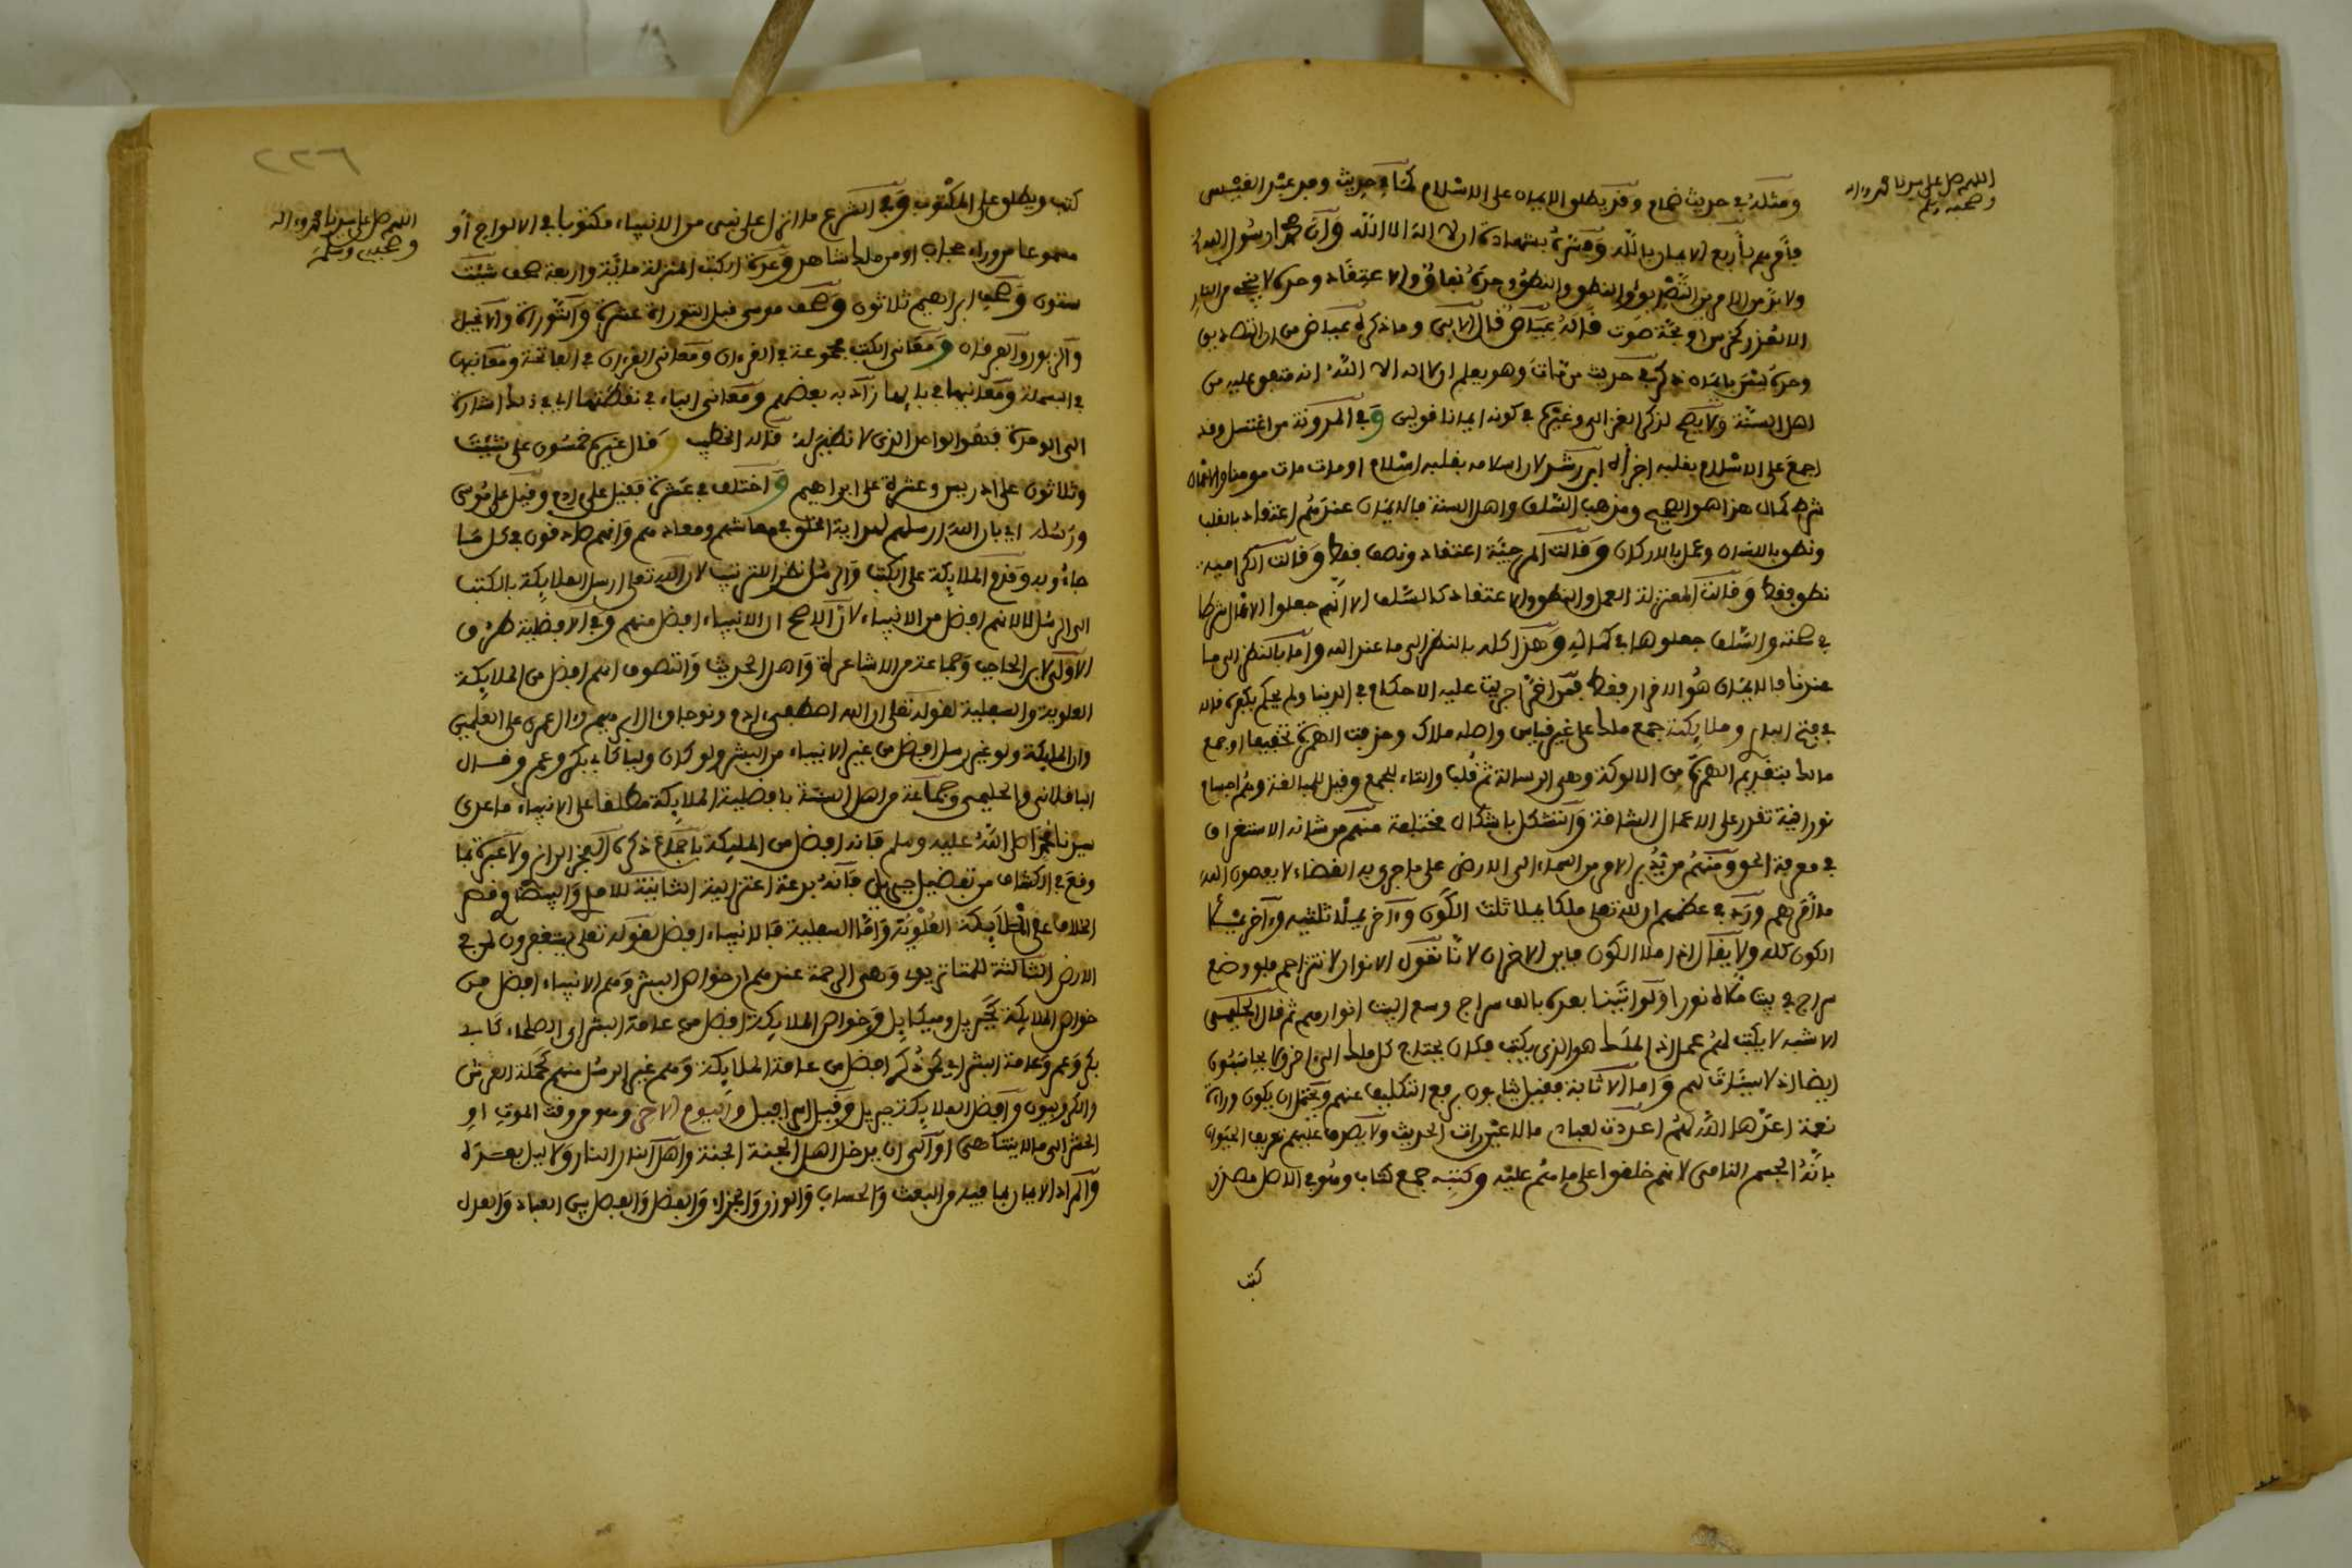 اللهم صل على سيدنا محمد وءاله
وصحبه وسلم
ومثله في حديث ضمام وقد يطلق الايمان على الاسلام كما في حديث وفد عبد القيس
فأمرهم بأربع الايمان بالله وفسره بشهادة ان لا اله الا الله وأن محمدا رسول الله
ولا بد من الامرين التصديق والنطق والنطق وحده نفاق والاعتقاد وحده لا ينجي من النار
الا لعذر كخرس او فجأة موت قاله عياض قال الابي وما ذكره عياض من ان التصديق
وحده ليس بايمان ذكر في حديث من مات وهو يعلم ان لا اله الا الله انه متفق عليه من
اهل السنة ولا يصح لذكر الغزالي وغيره في كونه ايمانا قولين وفي المدونة من اغتسل وقد
اجمع على الاسلام بقلبه اجزأه ابن رشد لان اسلامه بقلبه اسلام او مات مات مومنا والاعمال
شرط كمال هذا هو الصحيح ومذهب السلف واهل السنة فالايمان عندهم اعتقاد بالقلب
ونطق باللسان وعمل بالاركان وقالت المرجئة اعتقاد ونطق فقط وقالت الكرامية
نطق فقط وقالت المعتزلة العمل والنطق والاعتقاد كالسلف الا انهم جعلوا الاعمال شرطا
في صحته والسلف جعلوها في كماله وهذا كله بالنظر الى ما عند الله واما بالنظر الى ما
عندنا فالايمان هو الاقرار فقط فمن اقر اجريت عليه الاحكام في الدنيا ولم يحكم بكفره قاله
في فتح الباري وملايكته جمع ملك على غير قياس واصله ملاك وحذفت الهمزة تخفيفا او جمع
مالك بتقديم الهمزة من الالوكة وهي الرسالة ثم قلب والتاء للجمع وقيل للمبالغة وهم اجسام
نورانية تقدر على الاعمال الشاقة والتشكل باشكال مختلفة منهم من شانه الاستغراق
في معرفة الحق ومنهم من يدبر الامر من السماء الى الارض على ما جرى به القضاء لا يعصون الله
ما أمرهم ورد في عظمهم ان لله تعلى ملكا يملا ثلث الكون وءاخر يملا ثلثيه وءاخر يملأ
الكون كله ولا يقال اذا ملا الكون فاين الاخران لانا نقول الانوار لا تتزاحم فلو وضع
سراج في بيت ملاه نورا ولو اتينا بعده بالف سراج وسع البيت انوارهم ثم قال الحليمي
الاشبه لا يكتب لهم عمل اذ الملك هو الذي يكتب فكان يحتاج كل ملك الى ءاخر ولا يحاسبون
ايضا اذ لا سيئات لهم واما الاثابة فقيل يثابون برفع التكليف عنهم ويحتمل ان يكون وراءه
نعمة اعدها الله لهم اعددت لعبادي ما لا عين رات الحديث ولا يصدق عليهم تعريف الحيوان
بانه الجسم النامي لانهم خلقوا على ما هم عليه وكتبه جمع كتاب وهو في الاصل مصدر
كتب
٢٢٦
اللهم صل على سيدنا محمد وءاله
وصحبه وسلم
كتب ويطلق على المكتوب وفي الشرع ما انزل على نبي من الانبياء مكتوبا في الالواح أو
مسموعا من وراء حجاب او من ملك مشاهد وعدة الكتب المنزلة مائة واربعة صحف شيث
ستون وصحف ابراهيم ثلاثون وصحف موسى قبل التوراة عشرة والتوراة والانجيل
والزبور والفرقان ومعاني الكتب مجموعة في القرءان ومعاني القرءان في الفاتحة ومعانيها
في البسملة ومعانيها في بايها زاد بعضهم ومعاني الباء في نقطتها اي في ذلك اشارة
الى الوحدة فنقول الواحد الذي لا نظير له قاله الخطيب وقال غيره خمسون على شيث
وثلاثون على ادريس وعشرة على ابراهيم واختلف في عشرة فقيل على ءادم وقيل على موسى
ورسله اي بان الله ارسلهم لهداية الخلق في معاشهم ومعادهم وانهم صادقون في كل ما
جاءوا به وقدم الملايكة على الكتب والرسل نظرا للترتيب لان الله تعلى ارسل الملايكة بالكتب
الى الرسل لا لانهم افضل من الانبياء لان الاصح ان الانبياء افضل منهم وفي الافضلية طرق
الاولى لابن الحاجب وجماعة من الاشاعرة واهل الحديث والتصوف انهم افضل من الملايكة
العلوية والسفلية لقوله تعلى ان الله اصطفى ءادم ونوحا وءال ابراهيم وءال عمران على العلمين
وان الملايكة ولو غير رسل افضل من غير الانبياء من البشر ولو كان وليا كابي بكر وعمر وقال
الباقلاني والحليمي وجماعة من اهل السنة بافضلية الملايكة مطلقا على الانبياء ما عدى
سيدنا محمدا صلى الله عليه وسلم فانه افضل من الملايكة باجماع ذكره الفخر الرازي ولا عبرة بما
وقع في الكشاف من تفضيل جبريل فانه بدعة اعتزالية الثانية للامدي والبيضاوي قصر
الخلاف على الملايكة العلوية واما السفلية فالانبياء افضل لقوله تعلى يستغفرون لمن في
الارض الثالثة للماتريدي وهي الراجحة عندهم ان خواص البشر وهم الانبياء افضل من
خواص الملايكة كجبريل وميكايل وخواص الملايكة افضل من عامة البشر اي الصلحاء كابي
بكر وعمر وعامة البشر اي من ذكر افضل من عامة الملايكة وهم غير الرسل منهم كحملة العرش
والكروبيون وافضل الملايكة جبريل وقيل اسرافيل واليوم الاخر وهو من وقت الموت او
الحشر الى ما لا يتناهى او الى ان يدخل اهل الجنة الجنة واهل النار النار ولا ليل بعده
والمراد الايمان بما فيه من البعث والحساب والوزن والجزاء والفضل والفصل بين العباد والعدل